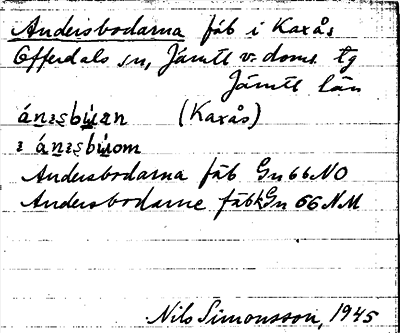 Andersbodarna fäb i Kaxås
Offerdals sn, Jämtl v. doms. tg
Jämtl län
ánɪsbùɪan (Kaxås)
ɪ ánɪsbùɪom
Andersbodarna fäb Gn 66 NO
Andersbodarne fäbk Gn 66 NM
Nils Simonsson, 1945